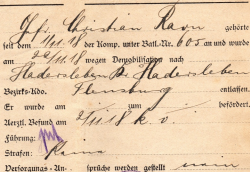 Christian Ravn gehörte
seit dem 1/11.18 der Komp. unter Batl. No. 605 an und wurde
am 22/11.18 wegen Demobilisation nach
Hadersleben Hadersleben
Bezirks-Kdo. Flensburg entlassen.
Er wurde am zum befördert.
Aerztl. Befund am 21/11 18 k. v.
Führung:
Strafen: Keine
Versorgungs-An- sprüche werden gestellt nein